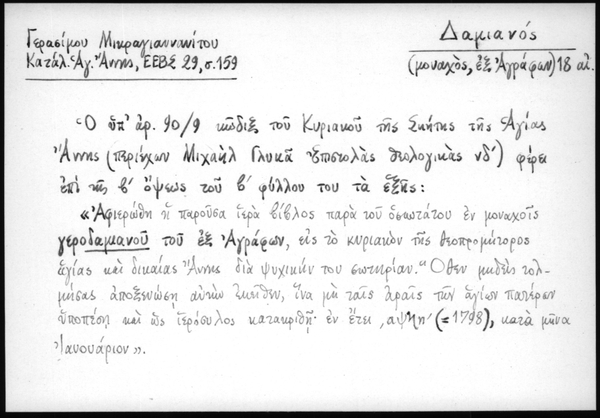 Γερασίμου Μικραγιαννανίτου
Κατάλ. Ἁγ. Ἄννης, ΕΕΒΣ 29, σ. 159
Δαμιανός
(μοναχὸς, ἐξ Ἀγράφων) 18 αἰ.
Ὁ ὑπ' ἀρ. 90/9 κῶδιξ τοῦ Κυριακοῦ τῆς Σκήτης τῆς Ἁγίας
Ἄννης (περιέχων Μιχαὴλ Γλυκᾶ Ἐπιστολὰς θεολογικὰς νδ') φέρει
ἐπὶ τῆς β' ὄψεως τοῦ β' φύλλου του τὰ ἑξῆς:
«Ἀφιερώθη ἡ παροῦσα ἱερὰ βίβλος παρὰ τοῦ ὁσιωτάτου ἐν μοναχοῖς
γεροδαμιανοῦ τοῦ ἐξ Ἀγράφων, εἰς τὸ κυριακὸν τῆς θεοπρομήτορος
ἁγίας καὶ δικαίας Ἄννης διὰ ψυχικήν του σωτηρίαν. Ὅθεν μηδεὶς τολ-
μήσας ἀποξενώσῃ αὐτὴν ἐκεῖθεν, ἵνα μὴ ταῖς ἀραῖς τῶν ἁγίων πατέρων
ὑποπέσῃ καὶ ὡς ἱερόσυλος κατακριθῇ· ἐν ἔτει ͵αψϟη' (=1798), κατὰ μῆνα
Ἰανουάριον».